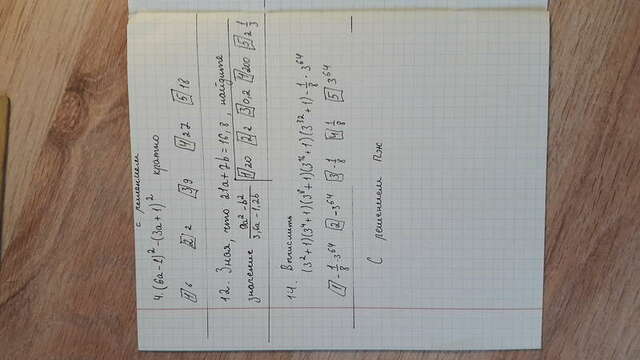 с решением
4. (6a-1)² - (3a+1)² кратно
1 6 2 2 3 9 4 27 5 18
12. Зная, что 21a+7b=16,8, найдите
значение (9a²-b²)/(3,6a-1,2b) 1 20 2 2 3 0,2 4 200 5 2 1/3
14. Вычислить
(3²+1)(3⁴+1)(3⁸+1)(3¹⁶+1)(3³²+1) - 1/8 · 3⁶⁴
1 -1/8·3⁶⁴ 2 -3⁶⁴ 3 -1/8 4 1/8 5 3⁶⁴
С решением пж